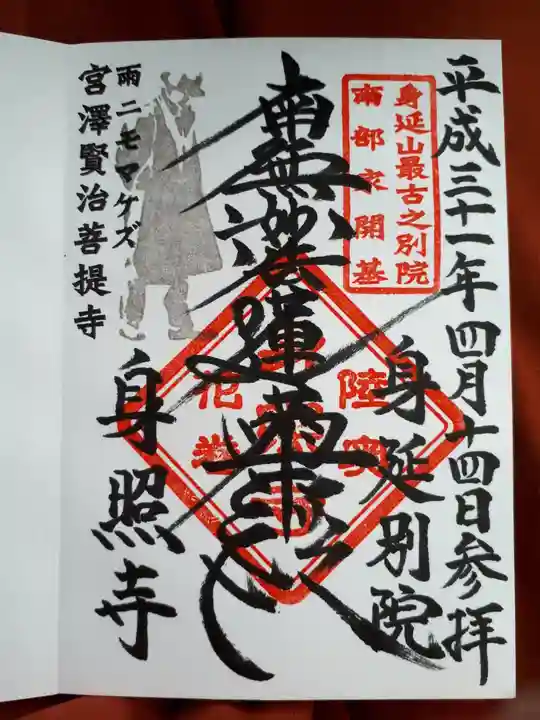 平成三十一年四月十四日参拝
身延山最古之別院
南部家開基
身延別院
陸奥
花巻
南無妙法蓮華経
雨ニモマケズ
宮澤賢治菩提寺
身照寺